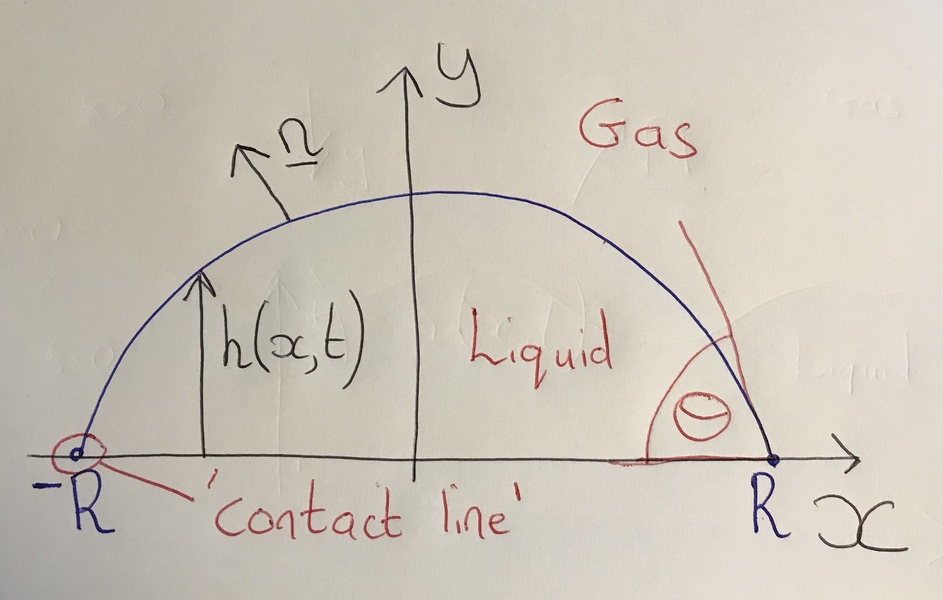 y
n
Gas
h(x,t)
Liquid
Θ
-R
'Contact line'
R
x